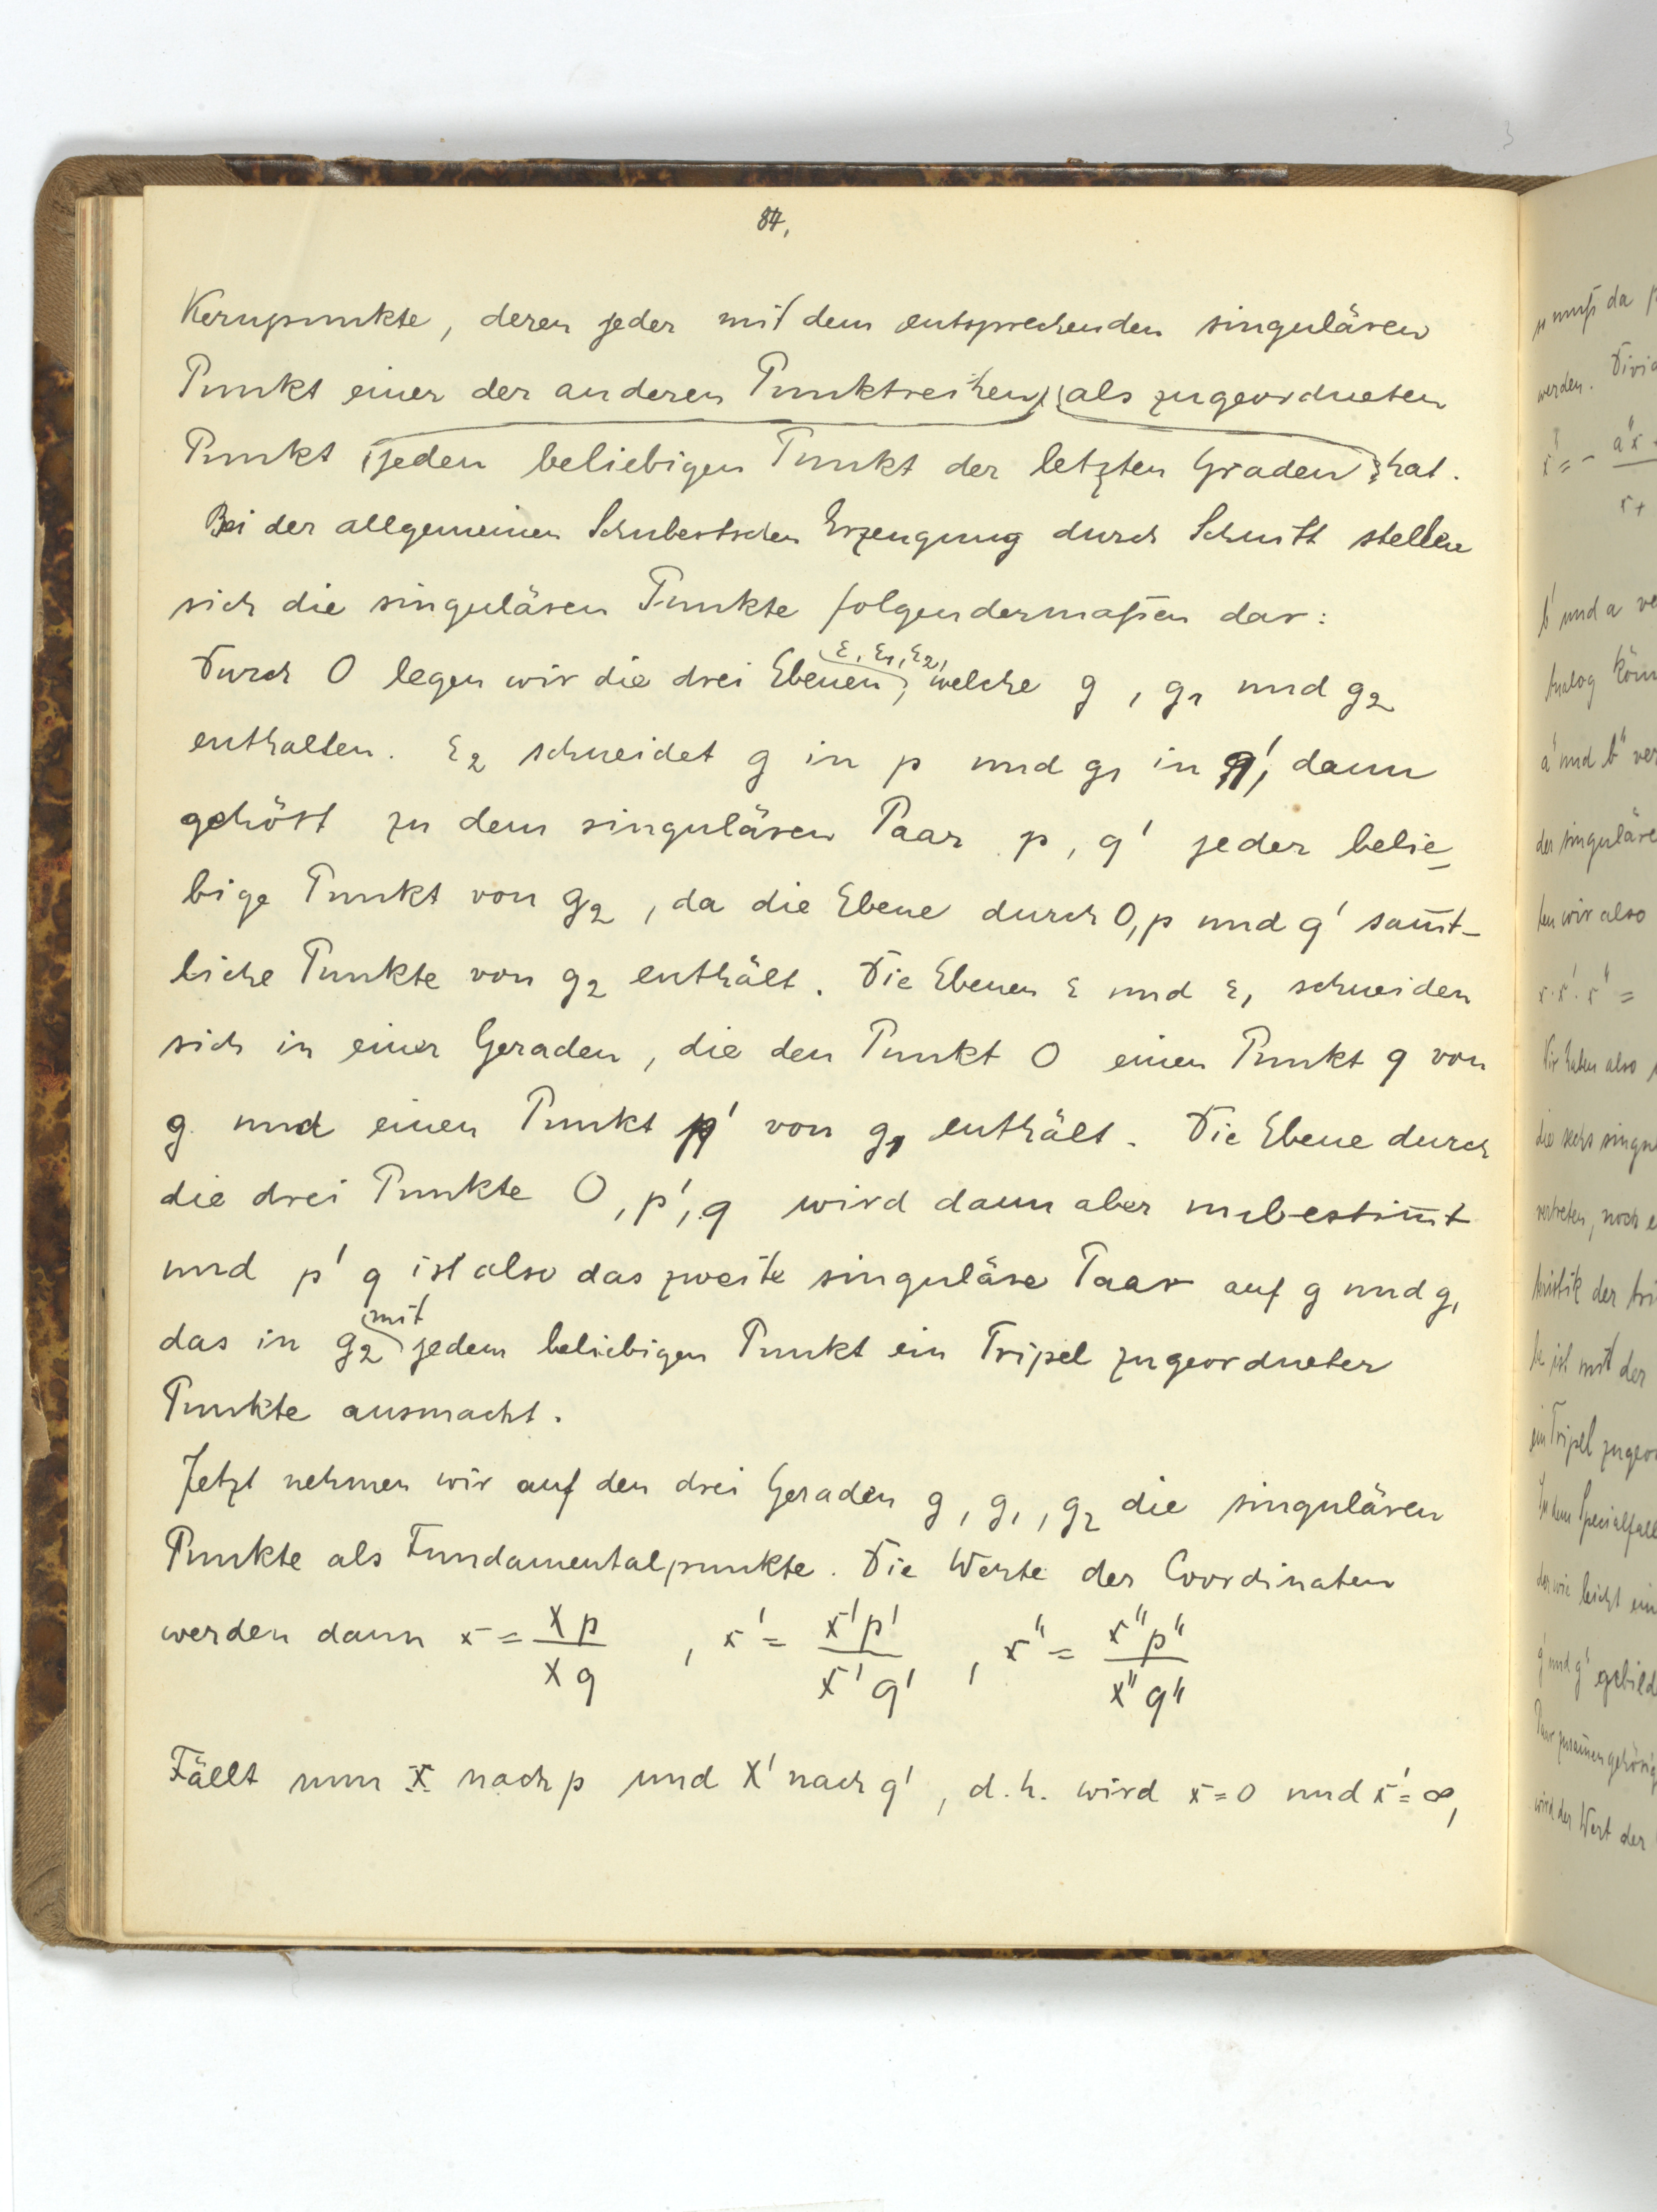 84,
Kernpunkte, deren jeder mit dem entsprechenden singulären
Punkt einer der anderen Punktreihen als zugeordneten
Punkt jeden beliebigen Punkt der letzten Graden hat.
Bei der allgemeinen Schubertschen Erzeugung durch Schnitt stellen
sich die singulären Punkte folgendermaßen dar:
Durch O legen wir die drei Ebenen ε, ε₁, ε₂, welche g, g₁ und g₂
enthalten. ε₂ schneidet g in p und g₁ in q', dann
gehört zu dem singulären Paar p, q' jeder belie=
bige Punkt von g₂, da die Ebene durch O, p und q' sam̅t-
liche Punkte von g₂ enthält. Die Ebenen ε und ε₁ schneiden
sich in einer Geraden, die den Punkt O einen Punkt q von
g und einen Punkt p' von g₁ enthält. Die Ebene durch
die drei Punkte O, p', q wird dann aber unbestim̅t
und p' q ist also das zweite singuläre Paar auf g und g₁
das in g₂ mit jedem beliebigen Punkt ein Tripel zugeordneter
Punkte ausmacht.
Jetzt nehmen wir auf den drei Geraden g, g₁, g₂ die singulären
Punkte als Fundamentalpunkte. Die Werte der Coordinaten
werden dann x = Xp / Xq , x' = X'p' / X'q' , x'' = X''p'' / X''q''
Fällt nun X nach p und X' nach q', d.h. wird x = 0 und x' = ∞,
muß da
werden. Divid
x'' = - a''x
x+
b' und a ve
Analog kön
a' und b'' ver
der singuläre
ten wir also
x·x'·x'' =
Wir haben also
die sechs singu
vertreten, noch e
teristik der tri
te ist mit der
ein Tripel zugeor
In dem Specialfall
der wie leicht ein
g' und g'' gebild
Paar zusam̅engehörig
wird der Wert der